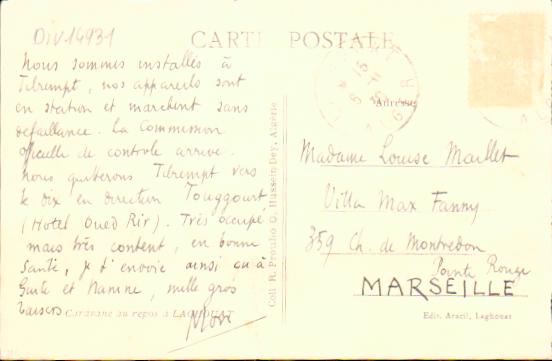 DIV 14931
CARTE POSTALE
Nous sommes installés à
Tilrempt, nos appareils sont
en station et marchent sans
defaillance. La Commission
officielle de controle arrive.
Nous quitterons Tilrempt vers
le dix en direction Touggourt
(Hotel Oued Rir). Très occupé
mais très content, en bonne
santé, je t'envoie ainsi qu'à
et Nanine, mille gros
baisers
Caravane au repos à LAGHOUAT
Coll R. Prouho O. Hussein-Dey, Algérie
Adresse
Madame Louise Maillet
Villa Max Fanny
359 Ch. de Montredon
Pointe Rouge
MARSEILLE
Edit. Aracil, Laghouat